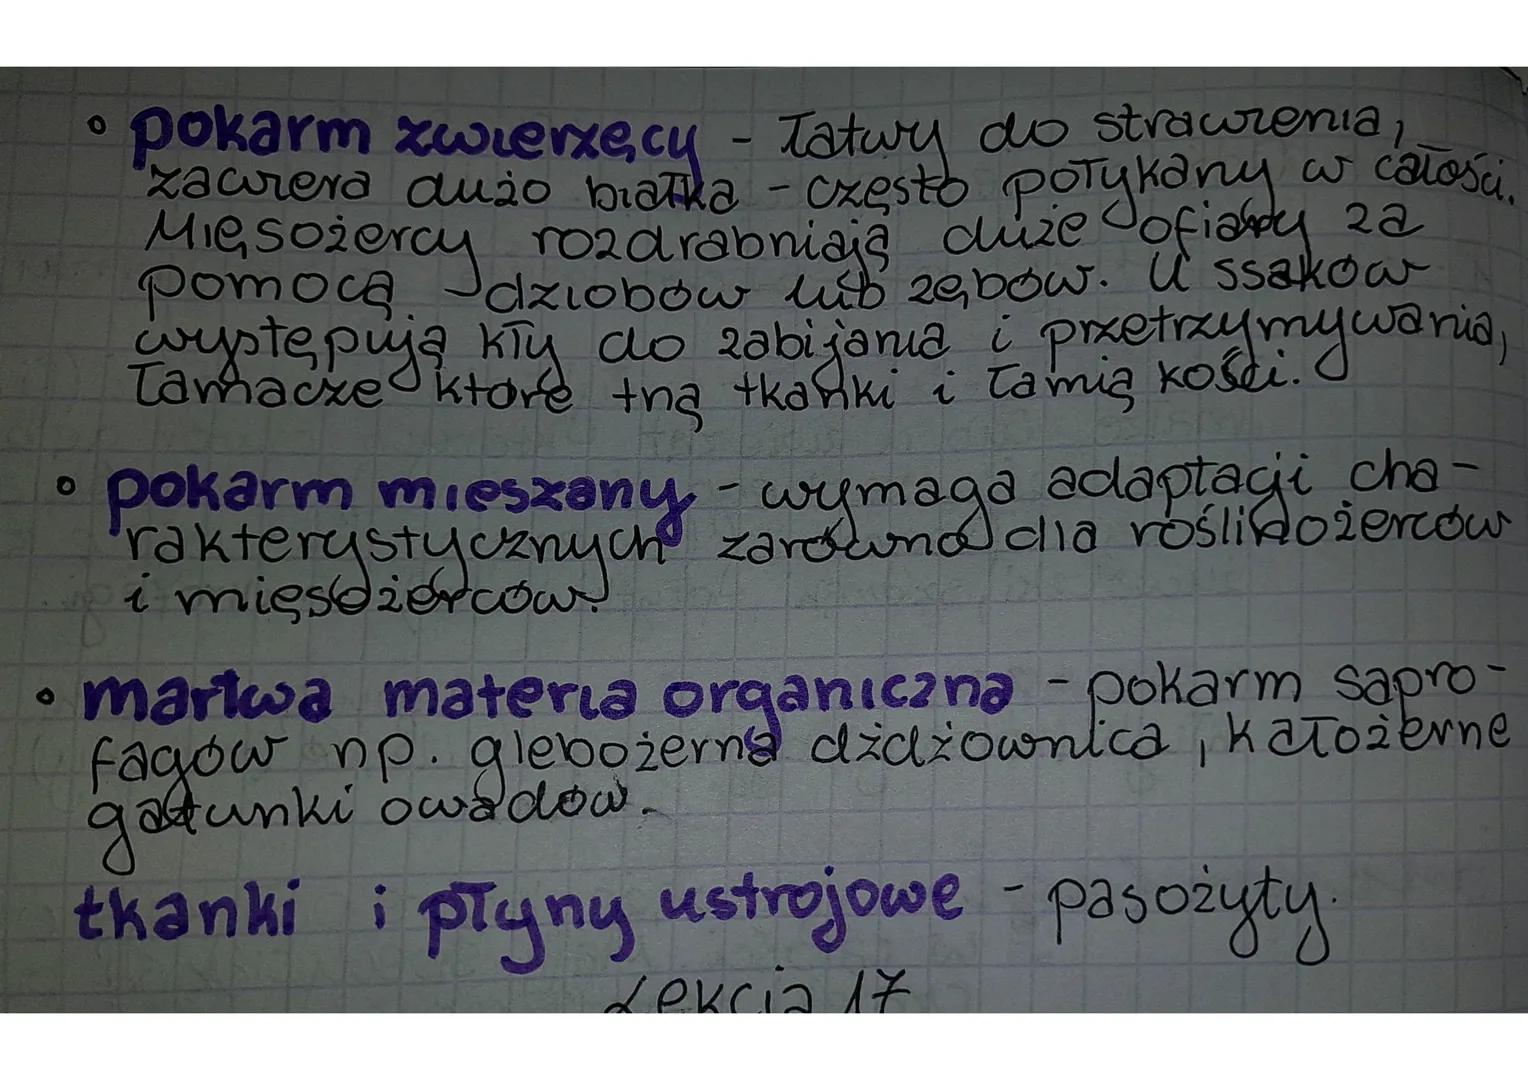 • pokarm zwierzęcy - łatwy do strawienia,
zawiera dużo białka - często połykany w całości.
Mięsożercy rozdrabniają duże ofiary za
pomocą dziobów lub zębów. U ssaków
występują kły do zabijania i przetrzymywania,
łamacze które tną tkanki i łamią kości.
• pokarm mieszany - wymaga adaptacji cha-
rakterystycznych zarówno dla roślinożerców
i mięsożerców.
• martwa materia organiczna - pokarm sapro-
fagów np. glebożerna dżdżownica, kałożerne
gatunki owadów.
tkanki i płyny ustrojowe - pasożyty.
Lekcja 17